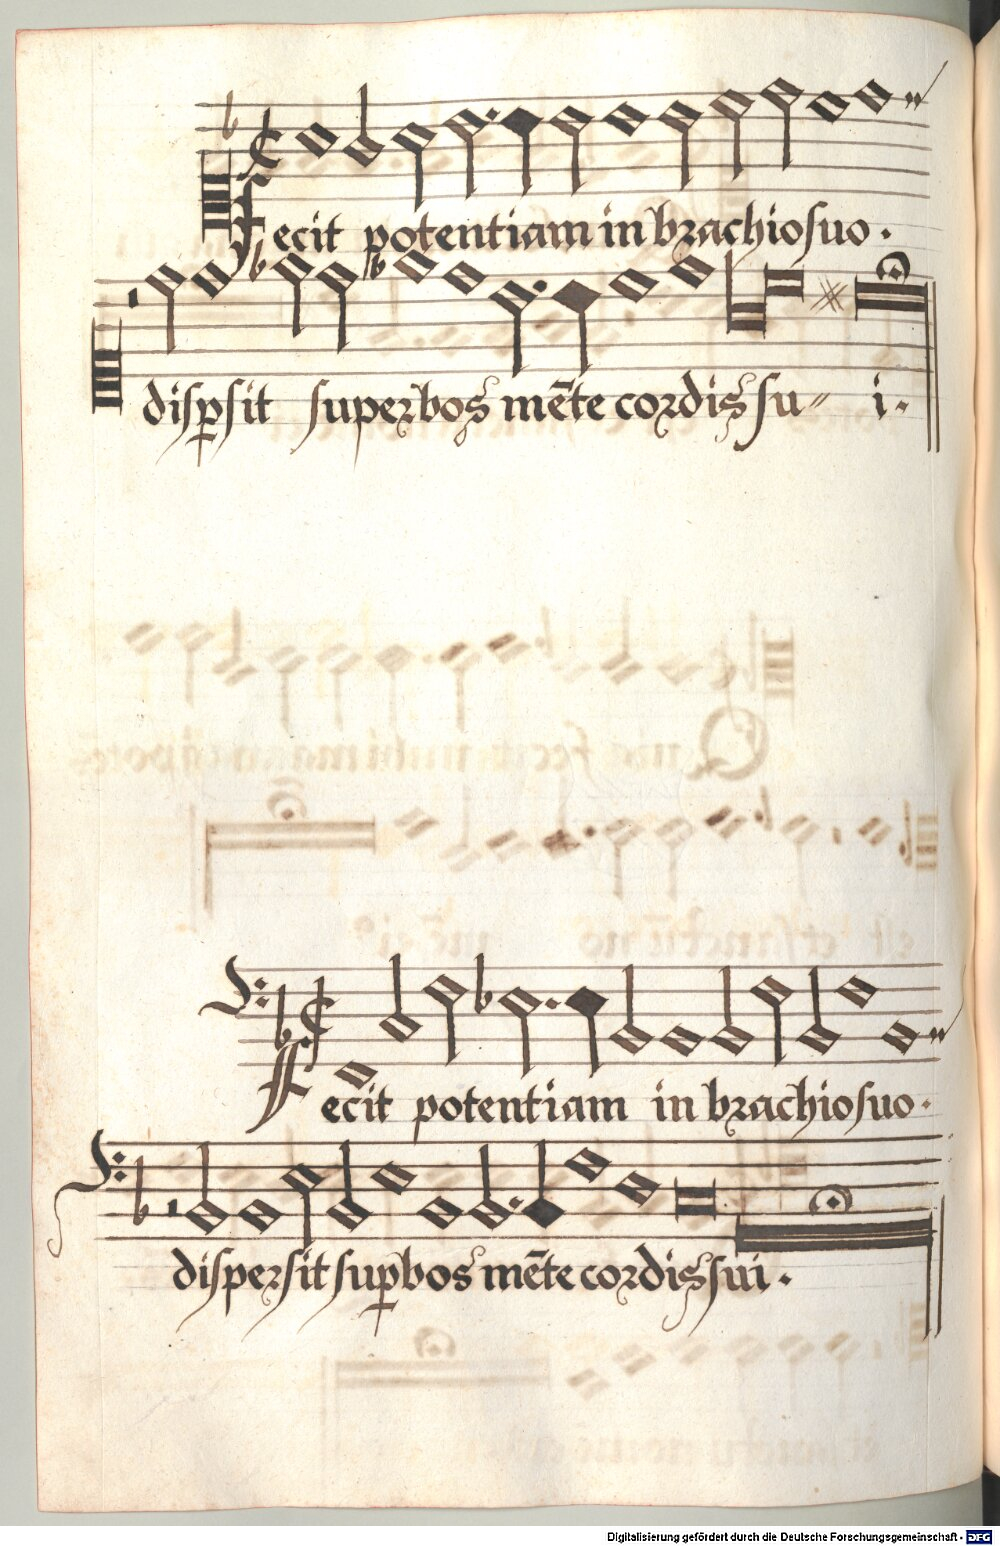 Fecit potentiam in brachio suo.
disp̱sit superbos mēte cordis su i.
Fecit potentiam in brachio suo.
dispersit sup̱bos mēte cordis sui.
Digitalisierung gefördert durch die Deutsche Forschungsgemeinschaft - DFG